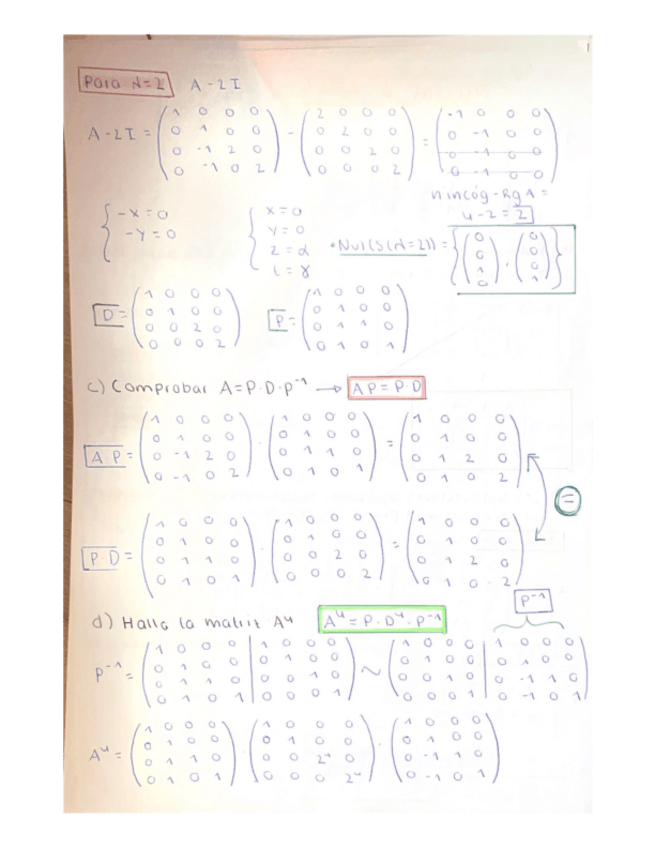 Para λ=2 A-2I
A-2I = (1 0 0 0; 0 1 0 0; 0 -1 2 0; 0 -1 0 2) - (2 0 0 0; 0 2 0 0; 0 0 2 0; 0 0 0 2) = (-1 0 0 0; 0 -1 0 0; 0 -1 0 0; 0 -1 0 0)
n incóg - Rg A =
4-2 = 2
{-x=0; -y=0 {x=0; y=0; z=α; t=γ • Nul(S(λ=2)) = {(0; 0; 1; 0), (0; 0; 0; 1)}
D = (1 0 0 0; 0 1 0 0; 0 0 2 0; 0 0 0 2) P = (1 0 0 0; 0 1 0 0; 0 1 1 0; 0 1 0 1)
c) Comprobar A=P·D·P⁻¹ → AP=P·D
A P = (1 0 0 0; 0 1 0 0; 0 -1 2 0; 0 -1 0 2) · (1 0 0 0; 0 1 0 0; 0 1 1 0; 0 1 0 1) = (1 0 0 0; 0 1 0 0; 0 1 2 0; 0 1 0 2)
=
P·D = (1 0 0 0; 0 1 0 0; 0 1 1 0; 0 1 0 1) · (1 0 0 0; 0 1 0 0; 0 0 2 0; 0 0 0 2) = (1 0 0 0; 0 1 0 0; 0 1 2 0; 0 1 0 2)
P⁻¹
d) Halla la matriz A⁴ A⁴ = P·D⁴·P⁻¹
P⁻¹ = (1 0 0 0 | 1 0 0 0; 0 1 0 0 | 0 1 0 0; 0 1 1 0 | 0 0 1 0; 0 1 0 1 | 0 0 0 1) ~ (1 0 0 0 | 1 0 0 0; 0 1 0 0 | 0 1 0 0; 0 0 1 0 | 0 -1 1 0; 0 0 0 1 | 0 -1 0 1)
A⁴ = (1 0 0 0; 0 1 0 0; 0 1 1 0; 0 1 0 1) · (1 0 0 0; 0 1 0 0; 0 0 2⁴ 0; 0 0 0 2⁴) · (1 0 0 0; 0 1 0 0; 0 -1 1 0; 0 -1 0 1)